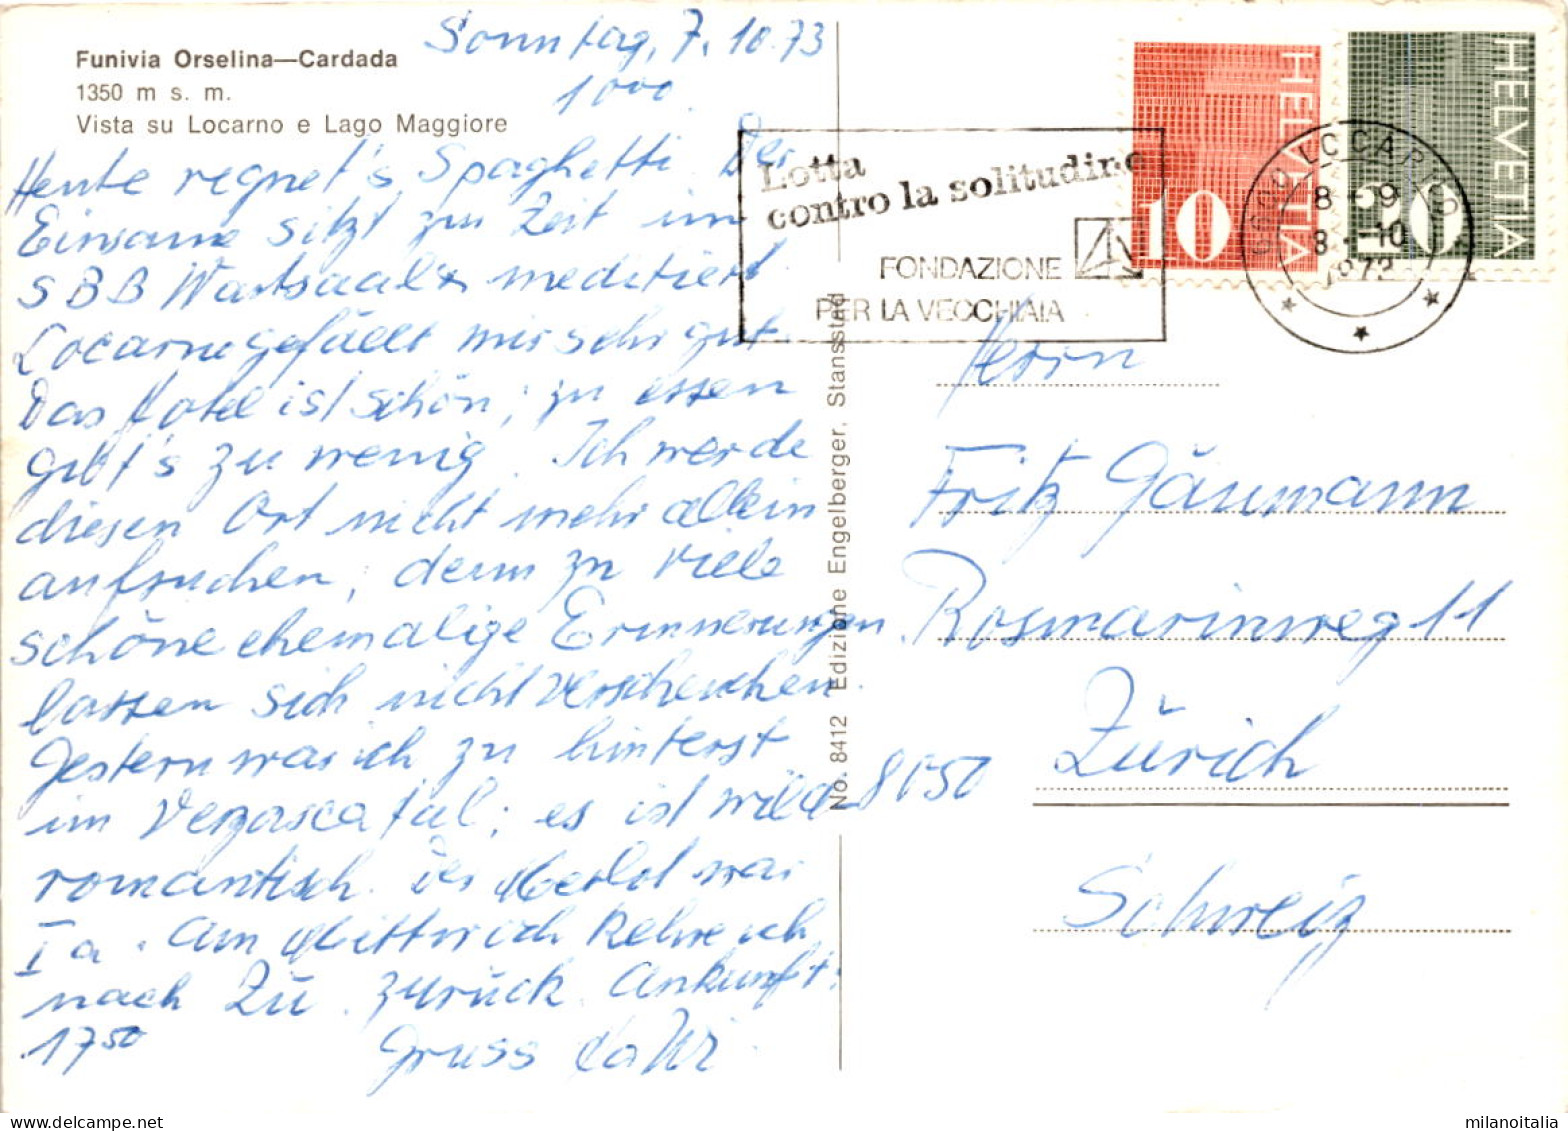 Funivia Orselina—Cardada
1350 m s. m.
Vista su Locarno e Lago Maggiore
Sonntag, 7.10.73
1000
Heute regnet's Spaghetti. Der
Einsame sitzt zur Zeit im
SBB Wartsaal & meditiert.
Locarno gefällt mir sehr gut.
Das Hotel ist schön, zu essen
gibt's zu wenig. Ich werde
diesen Ort nicht mehr allein
aufsuchen, denn zu viele
schöne ehemalige Erinnerungen
lassen sich nicht verscheuchen.
Gestern war ich zu hinterst
im Verzascatal; es ist wild-
romantisch. Der Merlot war
Ia. Am Mittwoch kehre ich
nach Zü. zurück. Ankunft:
1750
Gruss
No. 8412 Edizione Engelberger, Stansstad
Lotta
contro la solitudine
FONDAZIONE
PER LA VECCHIAIA
HELVETIA
10
HELVETIA
LOCARNO
8 - 9
8.-10
Herrn
Fritz Gäumann
Rosmarinweg 11
8050 Zürich
Schweiz
milanoitalia